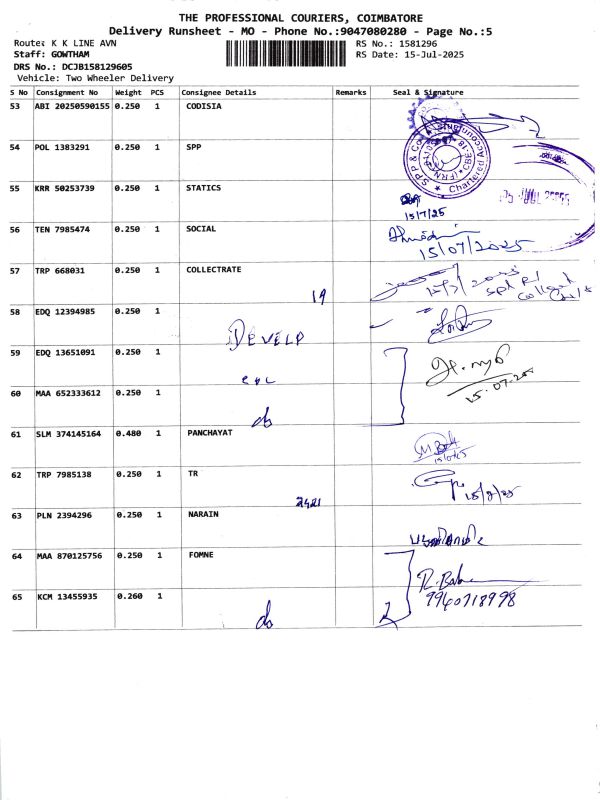 THE PROFESSIONAL COURIERS, COIMBATORE
Delivery Runsheet - MO - Phone No.:9047080280 - Page No.:5
Route: K K LINE AVN
RS No.: 1581296
Staff: GOWTHAM
RS Date: 15-Jul-2025
DRS No.: DCJB158129605
Vehicle: Two Wheeler Delivery
S No Consignment No Weight PCS Consignee Details Remarks Seal & Signature
53 ABI 20250590155 0.250 1 CODISIA
54 POL 1383291 0.250 1 SPP
SPP & Co
Chartered Accountants
55 KRR 50253739 0.250 1 STATICS
15/7/25
JUL
56 TEN 7985474 0.250 1 SOCIAL
15/07/2025
57 TRP 668031 0.250 1 COLLECTRATE
19
58 EDQ 12394985 0.250 1
DEVELP
59 EDQ 13651091 0.250 1
15.07.25
60 MAA 652333612 0.250 1
do
61 SLM 374145164 0.480 1 PANCHAYAT
62 TRP 7985138 0.250 1 TR
2421
63 PLN 2394296 0.250 1 NARAIN
64 MAA 870125756 0.250 1 FOMNE
R. Bala
9940718998
65 KCM 13455935 0.260 1
do